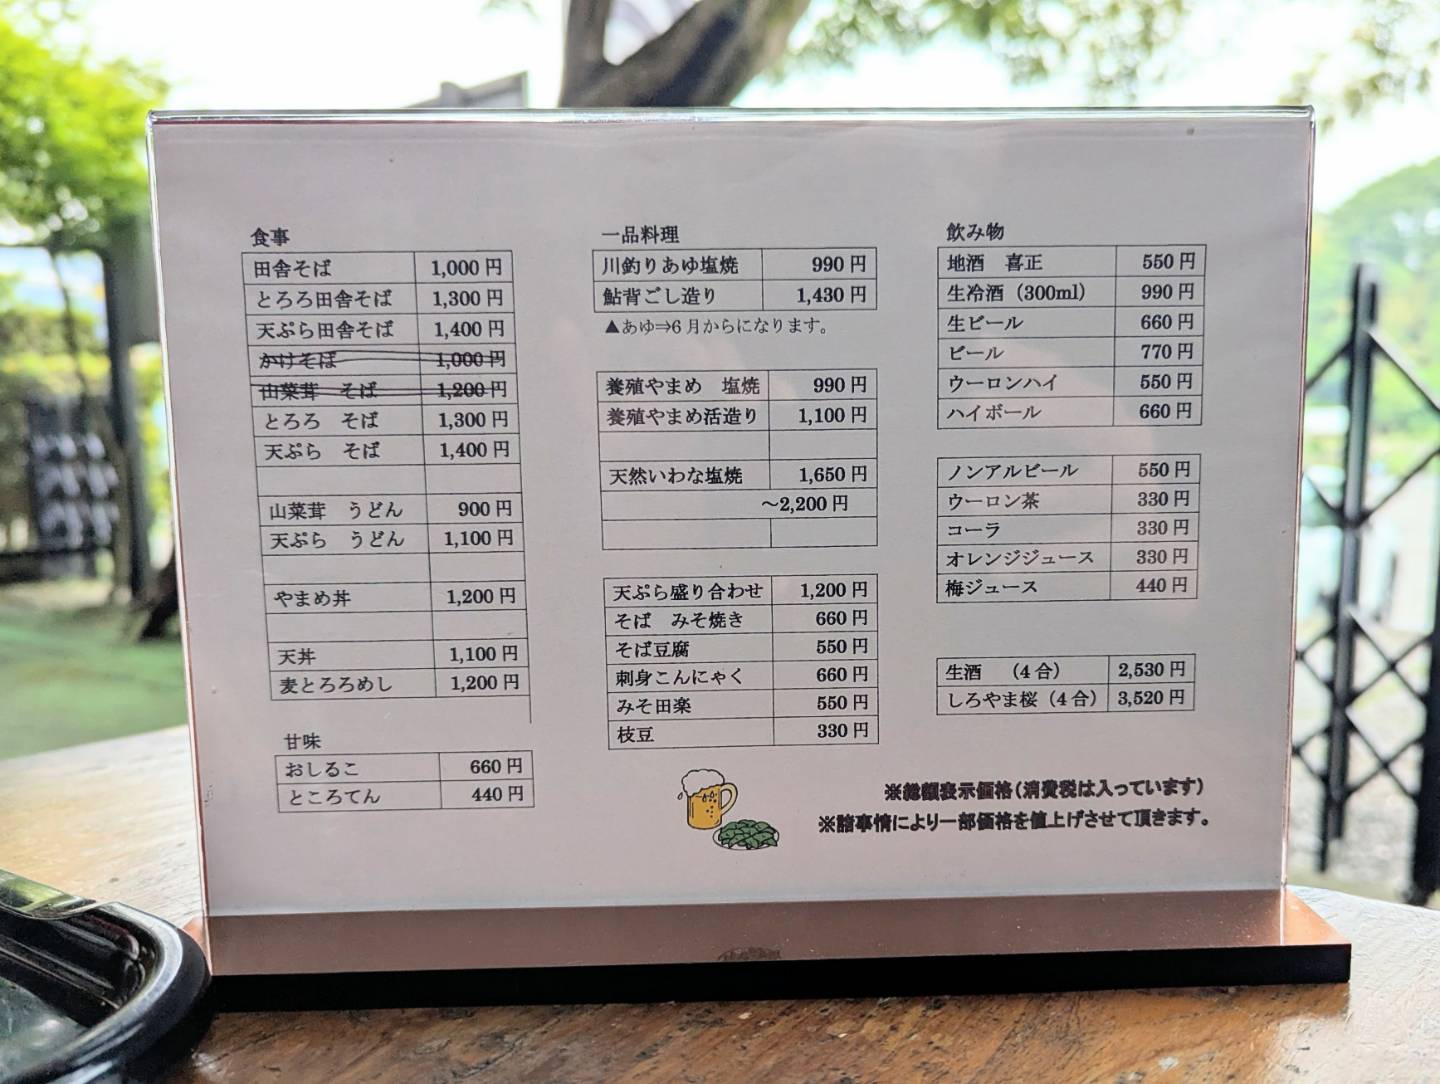 食事
田舎そば 1,000 円
とろろ田舎そば 1,300 円
天ぷら田舎そば 1,400 円
かけそば 1,000 円
山菜茸 そば 1,200 円
とろろ そば 1,300 円
天ぷら そば 1,400 円
山菜茸 うどん 900 円
天ぷら うどん 1,100 円
やまめ丼 1,200 円
天丼 1,100 円
麦とろろめし 1,200 円
甘味
おしるこ 660 円
ところてん 440 円
一品料理
川釣りあゆ塩焼 990 円
鮎背ごし造り 1,430 円
▲あゆ⇒6 月からになります。
養殖やまめ 塩焼 990 円
養殖やまめ活造り 1,100 円
天然いわな塩焼 1,650 円
～2,200 円
天ぷら盛り合わせ 1,200 円
そば みそ焼き 660 円
そば豆腐 550 円
刺身こんにゃく 660 円
みそ田楽 550 円
枝豆 330 円
飲み物
地酒 喜正 550 円
生冷酒（300ml） 990 円
生ビール 660 円
ビール 770 円
ウーロンハイ 550 円
ハイボール 660 円
ノンアルビール 550 円
ウーロン茶 330 円
コーラ 330 円
オレンジジュース 330 円
梅ジュース 440 円
生酒 （4 合） 2,530 円
しろやま桜（4 合） 3,520 円
※総額表示価格（消費税は入っています）
※諸事情により一部価格を値上げさせて頂きます。